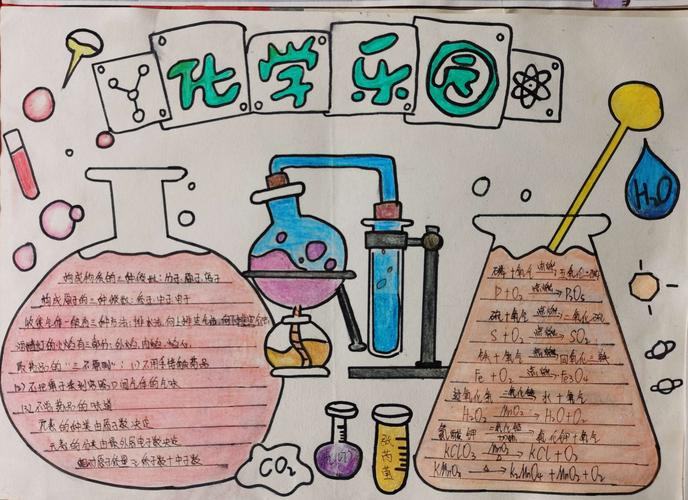 化学乐园
H₂O
构成物质的三种微粒：分子、原子、离子
构成原子的三种微粒：质子、中子、电子
收集气体一般有三种方法：排水法、向上排空气法、向下排空气法
酒精灯的火焰有三部分：外焰、内焰、焰心
取药品的“三不原则”：(1)不用手接触药品
(2)不把鼻子凑到容器口闻气体的气味
(3)不尝药品的味道
元素的种类由质子数决定
元素的分类由最外层电子数决定
相对原子质量≈质子数+中子数
磷+氧气 点燃→ 五氧化二磷
P+O₂ 点燃→ P₂O₅
硫+氧气 点燃→ 二氧化硫
S+O₂ 点燃→ SO₂
铁+氧气 点燃→ 四氧化三铁
Fe+O₂ 点燃→ Fe₃O₄
过氧化氢 二氧化锰→ 水+氧气
H₂O₂ MnO₂→ H₂O+O₂
氯酸钾 二氧化锰 加热→ 氯化钾+氧气
KClO₃ MnO₂→ KCl+O₂
KMnO₄ △→ K₂MnO₄+MnO₂+O₂
CO₂